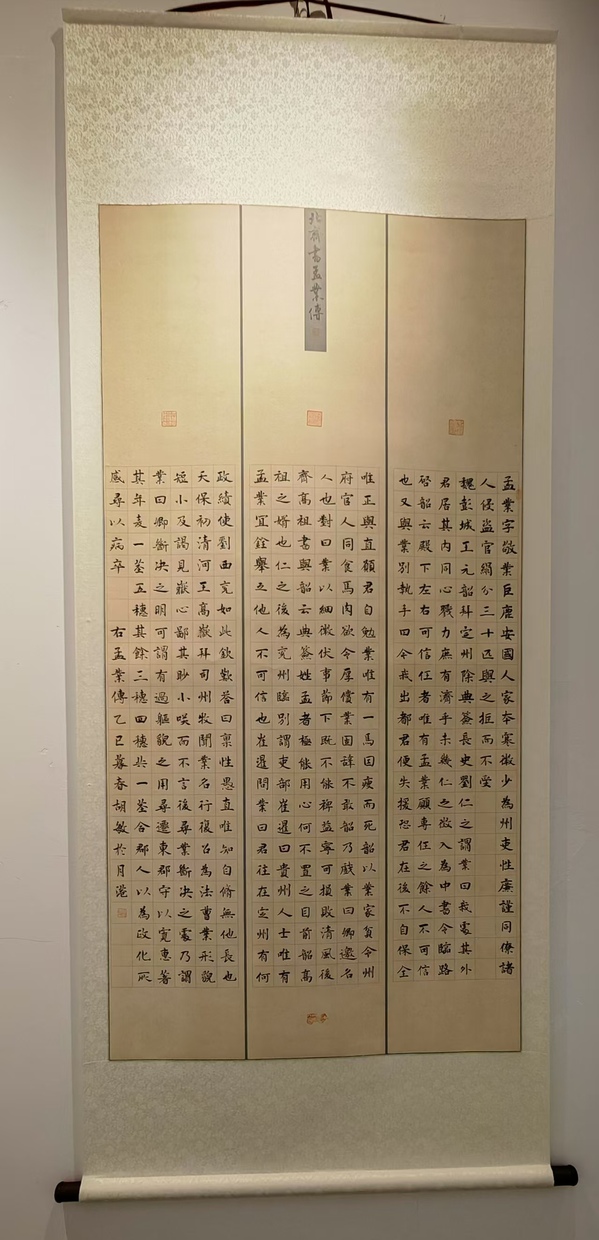 北齊書孟業傳
孟業字敬業巨鹿安國人家本寒微少為州吏性廉謹同僚諸
人侵盜官絹分三十匹與之拒而不受
魏彭城王元韶拜定州除典簽長史劉仁之謂業曰我處其外
君居其內同心戮力庶有濟乎未幾仁之徵入為中書令臨路
啓韶云殿下左右可信任者唯有孟業願專任之餘人不可信
也又與業別執手曰今我出都君便失援恐君在後不自保全
唯正與直願君自勉業唯有一馬因瘦而死韶以業家貧令州
府官人同食馬肉欲令厚償業固辭不敢韶乃戲業曰卿邀名
人也對曰業以細微伏事節下既不能裨益寧可損敗清風後
齊高祖書與韶云典簽姓孟者極能用心何不置之目前韶高
祖之婿也仁之後為兗州臨別謂吏部崔暹曰貴州人士唯有
孟業宜銓舉之他人不可信也崔暹問業曰君往在定州有何
政績使劉西兗如此欽歎答曰稟性愚直唯知自脩無他長也
天保初清河王高嶽拜司州牧聞業名行復召為法曹業形貌
短小及謁見嶽心鄙其眇小咲而不言後尋業斷決之處乃謂
業曰卿斷決之明可謂有過軀貌之用尋遷東郡守以寬惠著
其年麦一莖五穗其餘三穗四穗共一莖合郡人以為政化所
感尋以病卒 右孟業傳乙巳暮春胡敏於月